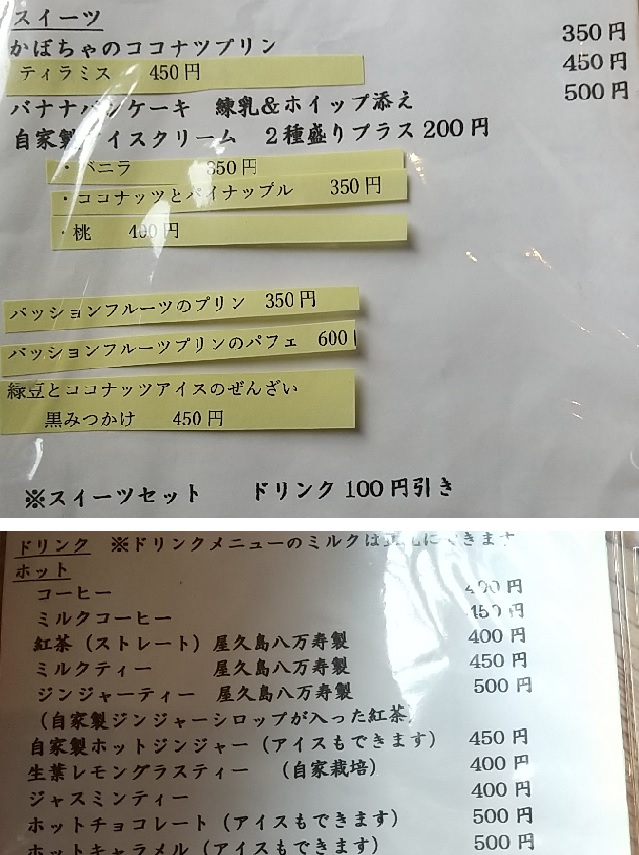 スイーツ
かぼちゃのココナツプリン 350円
ティラミス 450円 450円
バナナパンケーキ 練乳&ホイップ添え 500円
自家製アイスクリーム 2種盛りプラス200円
・バニラ 350円
・ココナッツとパイナップル 350円
・桃 400円
パッションフルーツのプリン 350円
パッションフルーツプリンのパフェ 600
緑豆とココナッツアイスのぜんざい
黒みつかけ 450円
※スイーツセット ドリンク100円引き
ドリンク ※ドリンクメニューのミルクは豆乳にできます
ホット
コーヒー 400円
ミルクコーヒー 450円
紅茶(ストレート)屋久島八万寿製 400円
ミルクティー 屋久島八万寿製 450円
ジンジャーティー 屋久島八万寿製 500円
(自家製ジンジャーシロップが入った紅茶)
自家製ホットジンジャー(アイスもできます) 450円
生葉レモングラスティー (自家栽培) 400円
ジャスミンティー 400円
ホットチョコレート(アイスもできます) 500円
ホットキャラメル(アイスもできます) 500円